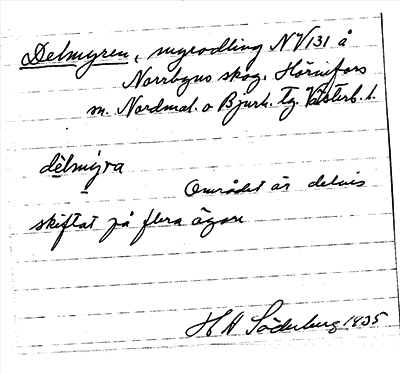 Delmyren, myrodling NV131 å
Norrbyns skog. Hörnefors
sn. Nordmal. o Bjurh. tg. Västerb. l.
dèlmýra
Området är delvis
skiftat på flera ägare
H A Söderberg 1935